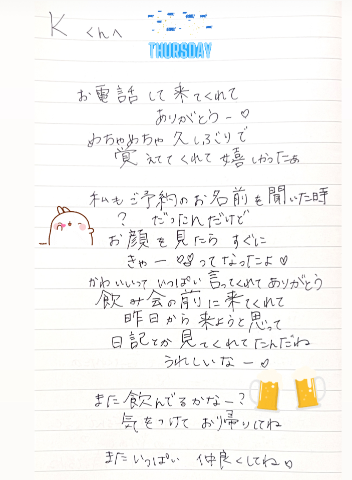 Kくんへ
THURSDAY
お電話して来てくれて
ありがとうー♡
めちゃめちゃ久しぶりで
覚えててくれて嬉しかったぁ
私もご予約のお名前を聞いた時
？ だったんだけど
お顔を見たら すぐに
きゃー♡♡ってなったよ♡
かわいいって いっぱい 言ってくれてありがとう
飲み会の前に来てくれて
昨日から来ようと思って
日記とか見てくれてたんだね
うれしいなー♡
また飲んでるかなー？
気をつけて お帰りしてね
またいっぱい 仲良くしてね♡